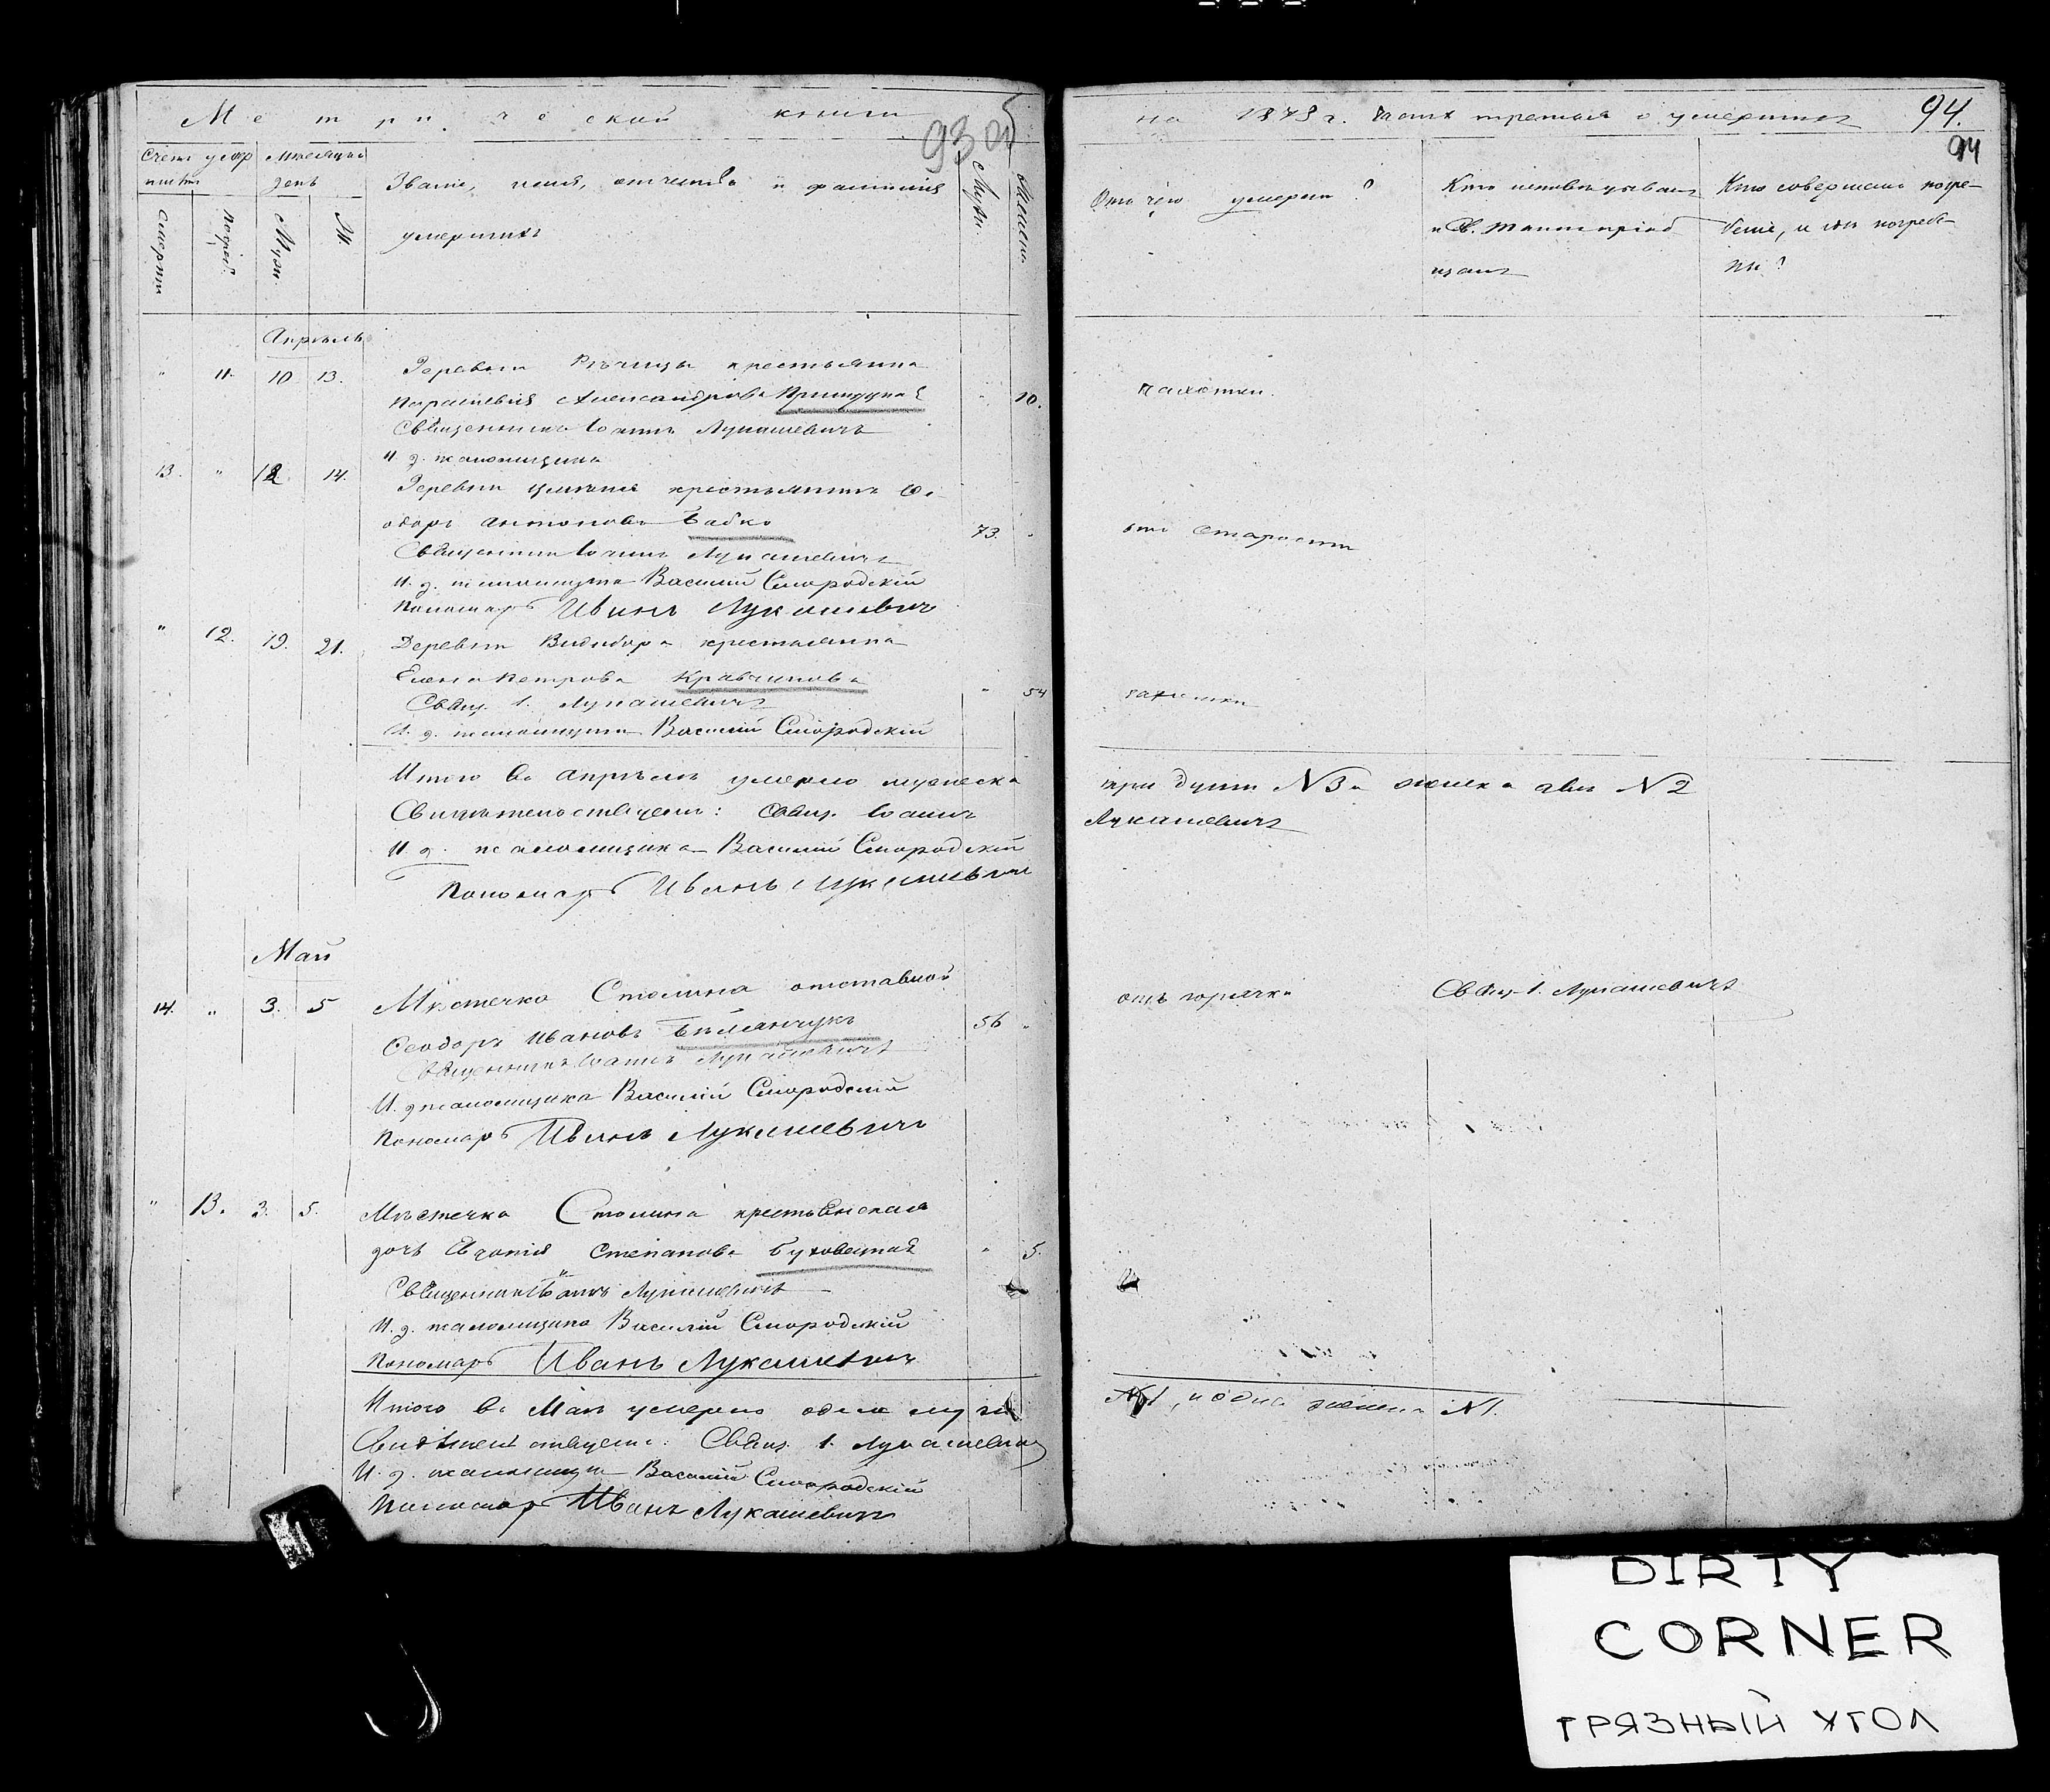 Метрической книги
93 об
Счетъ умер
шихъ
Мѣсяцъ и
день
Званіе, имя, отчество и фамилія
умершихъ
Муж.
Женск.
Смерти
Погреб.
Муж.
Ж.
Апрѣль
" 11. 10 13. Деревни Рѣчицы крестьянка
Параскевія Александрова " 10.
Священникъ Іоаннъ Лукашевичъ
И. д. псаломщика
13. " 12. 14. Деревни крестьянинъ Ѳе-
одоръ Антоновъ Бабко 73. "
Священникъ Іоаннъ Лукашевичъ
И. д. псаломщика Василій Смородскій
Пономарь Иванъ Лукашевичъ
" 12. 19. 21. Деревни Видибора крестьянка
Елена Петрова " 54
Свящ. І. Лукашевичъ
И. д. псаломщика Василій Смородскій
Итого въ Апрѣлѣ умерло мужеска
Свидѣтельствуемъ: Свящ. Іоаннъ
И. д. псаломщика Василій Смородскій
Пономарь Иванъ Лукашевичъ
Май
14. " 3. 5 Мѣстечка Столина отставной
Ѳеодоръ Ивановъ 56 "
Священникъ Іоаннъ Лукашевичъ
И. д. псаломщика Василій Смородскій
Пономарь Иванъ Лукашевичъ
" 13. 3. 5. Мѣстечка Столина крестьянская
дочь Евдокія Степанова Буховецкая " 5.
Священникъ Іоаннъ Лукашевичъ
И. д. псаломщика Василій Смородскій
Пономарь Иванъ Лукашевичъ
Итого въ Маѣ умерло одна муж
Свидѣтельствуемъ: Свящ. І. Лукашевичъ
И. д. псаломщика Василій Смородскій
Пономарь Иванъ Лукашевичъ
на 187 г. Часть третья о умершихъ 94.
94
Отъ чего умеръ?
Кто исповѣдывалъ
и Св. Тайнъ пріоб
щалъ
Кто совершалъ погре-
беніе, и гдѣ погребе-
ны?
чахотки.
отъ старости
чахотки
три души N 3 и женска двѣ N 2
Лукашевичъ
отъ горячки Свящ. І. Лукашевичъ
N 1, и одна женска N 1.
DIRTY
CORNER
ГРЯЗНЫЙ УГОЛ